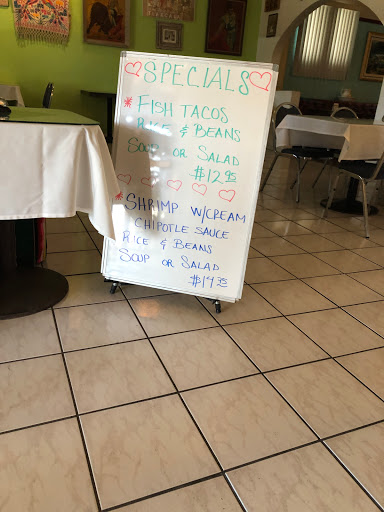 SPECIALS
* FISH TACOS
RICE & BEANS
SOUP OR SALAD
$12.95
* SHRIMP W/CREAM
CHIPOTLE SAUCE
RICE & BEANS
SOUP OR SALAD
$14.95